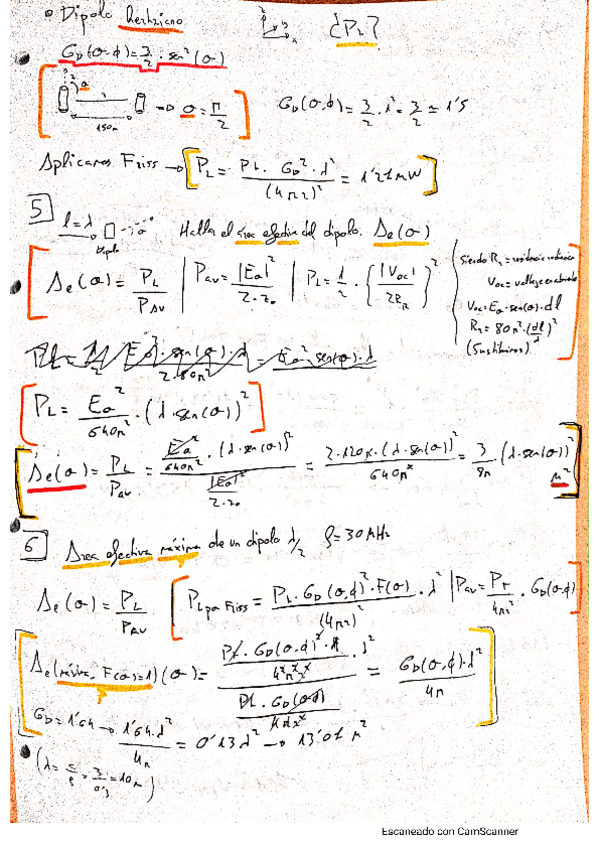 • Dipolo Hertziano ¿PL?
G_D(θ,ϕ)=3/2·sen²(θ)
150m → θ = π/2 G_D(θ,ϕ) = 3/2 · 1² = 3/2 ≃ 1'5
Aplicamos Friss → P_L = Pt · G_D² · λ² / (4πr)² = 1'21mW
5 l=λ Dipolo Hallar el área efectiva del dipolo. Ae(θ)
Ae(θ) = P_L / P_AV | P_AV = |Ea|² / 2·Z₀ | P_L = 1/2 · { |Voc| / 2R_R }²
Siendo Rr = resistencia
Voc = voltaje
Voc = Ea·sen(θ)·dl
Rr = 80π²·(dl/λ)²
(Sustituimos)
P_L = Ea² / 640π² · (λ·sen(θ))²
Ae(θ) = P_L / P_AV = Ea²/640π² · (λ·sen(θ))² / |Ea|²/2·Z₀ = 2·120π·(λ·sen(θ))² / 640π² = 3/8π · (λ·sen(θ))² m²
6 Area efectiva máxima de un dipolo λ/2 f=30MHz
Ae(θ) = P_L / P_AV | P_L por Friss = P_t · G_D(θ,ϕ)² · F(θ) · λ² / (4πr)² | P_AV = P_T / 4πr² · G_D(θ,ϕ)
Ae(máxima, F(θ)=1)(θ) = Pt · G_D(θ,ϕ)² · 1 · λ² / 4²π²r² / Pt · G_D(θ,ϕ) / 4πr² = G_D(θ,ϕ)·λ² / 4π
G_D = 1'64 → 1'64·λ² / 4π = 0'13λ² → 13'01 m²
(λ = c/f = 3/0'3 = 10m)
Escaneado con CamScanner